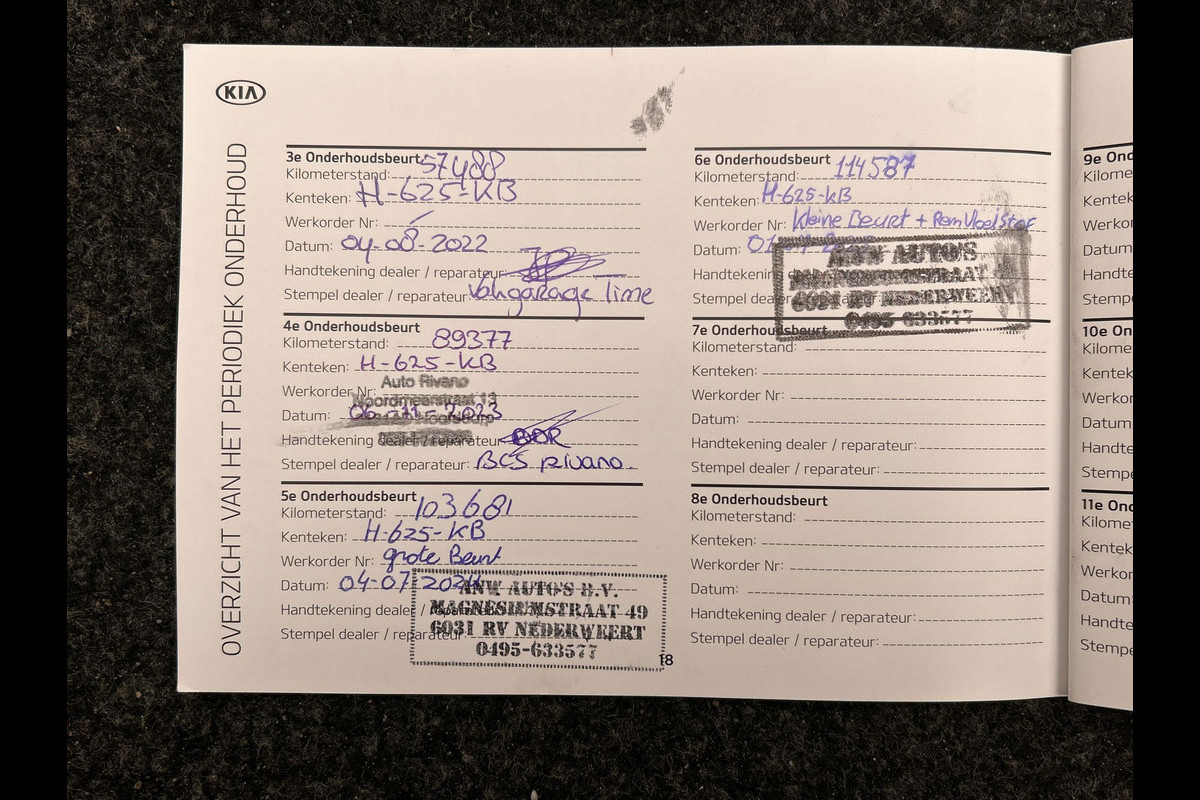 KIA
OVERZICHT VAN HET PERIODIEK ONDERHOUD
3e Onderhoudsbeurt
Kilometerstand: 57488
Kenteken: H-625-KB
Werkorder Nr:
Datum: 04-08-2022
Handtekening dealer / reparateur
Stempel dealer / reparateur: Vakgarage Time
4e Onderhoudsbeurt
Kilometerstand: 89377
Kenteken: H-625-KB
Auto Rivano
Werkorder Nr:
Noordmeerstraat 13
Datum: 06-11-2023
Handtekening dealer / reparateur
Stempel dealer / reparateur: BCS rivano
5e Onderhoudsbeurt
Kilometerstand: 103681
Kenteken: H-625-KB
Werkorder Nr: grote Beurt
Datum: 04-07-2024
Handtekening dealer /
Stempel dealer / reparateur:
ANW AUTO'S B.V.
MAGNESIUMSTRAAT 49
6031 RV NEDERWEERT
0495-633577
18
6e Onderhoudsbeurt
Kilometerstand: 114587
Kenteken: H-625-KB
Werkorder Nr: kleine Beurt + Remvloeistof
Datum:
Handtekening
Stempel dealer
ANW AUTO'S
MAGNESIUMSTRAAT
6031 RV NEDERWEERT
0495-633577
7e Onderhoudsbeurt
Kilometerstand:
Kenteken:
Werkorder Nr:
Datum:
Handtekening dealer / reparateur:
Stempel dealer / reparateur:
8e Onderhoudsbeurt
Kilometerstand:
Kenteken:
Werkorder Nr:
Datum:
Handtekening dealer / reparateur:
Stempel dealer / reparateur:
9e Ond
Kilome
Kentek
Werkor
Datum
Handte
Stempe
10e On
Kilome
Kentek
Werkor
Datum:
Handte
Stempe
11e Ond
Kilomet
Kentek
Werkor
Datum:
Handte
Stempe